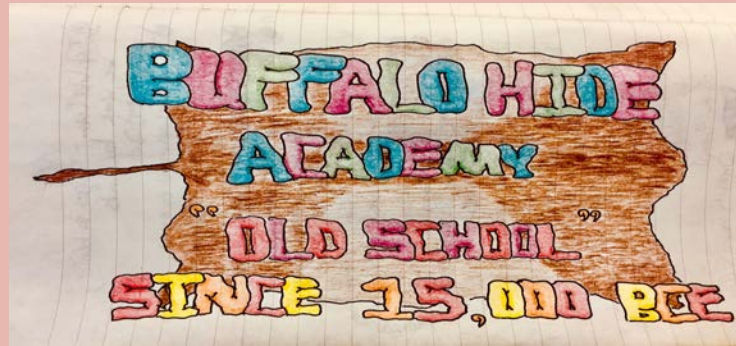 BUFFALO HIDE
ACADEMY
"OLD SCHOOL"
SINCE 15,000 BCE